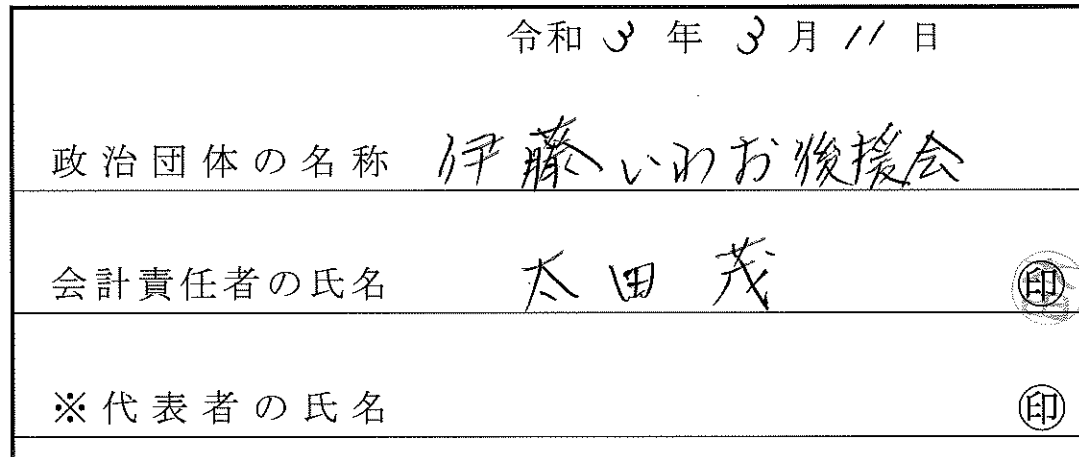 令和3年3月11日
政治団体の名称 伊藤いわお後援会
会計責任者の氏名 太田茂 ㊞
※代表者の氏名 ㊞